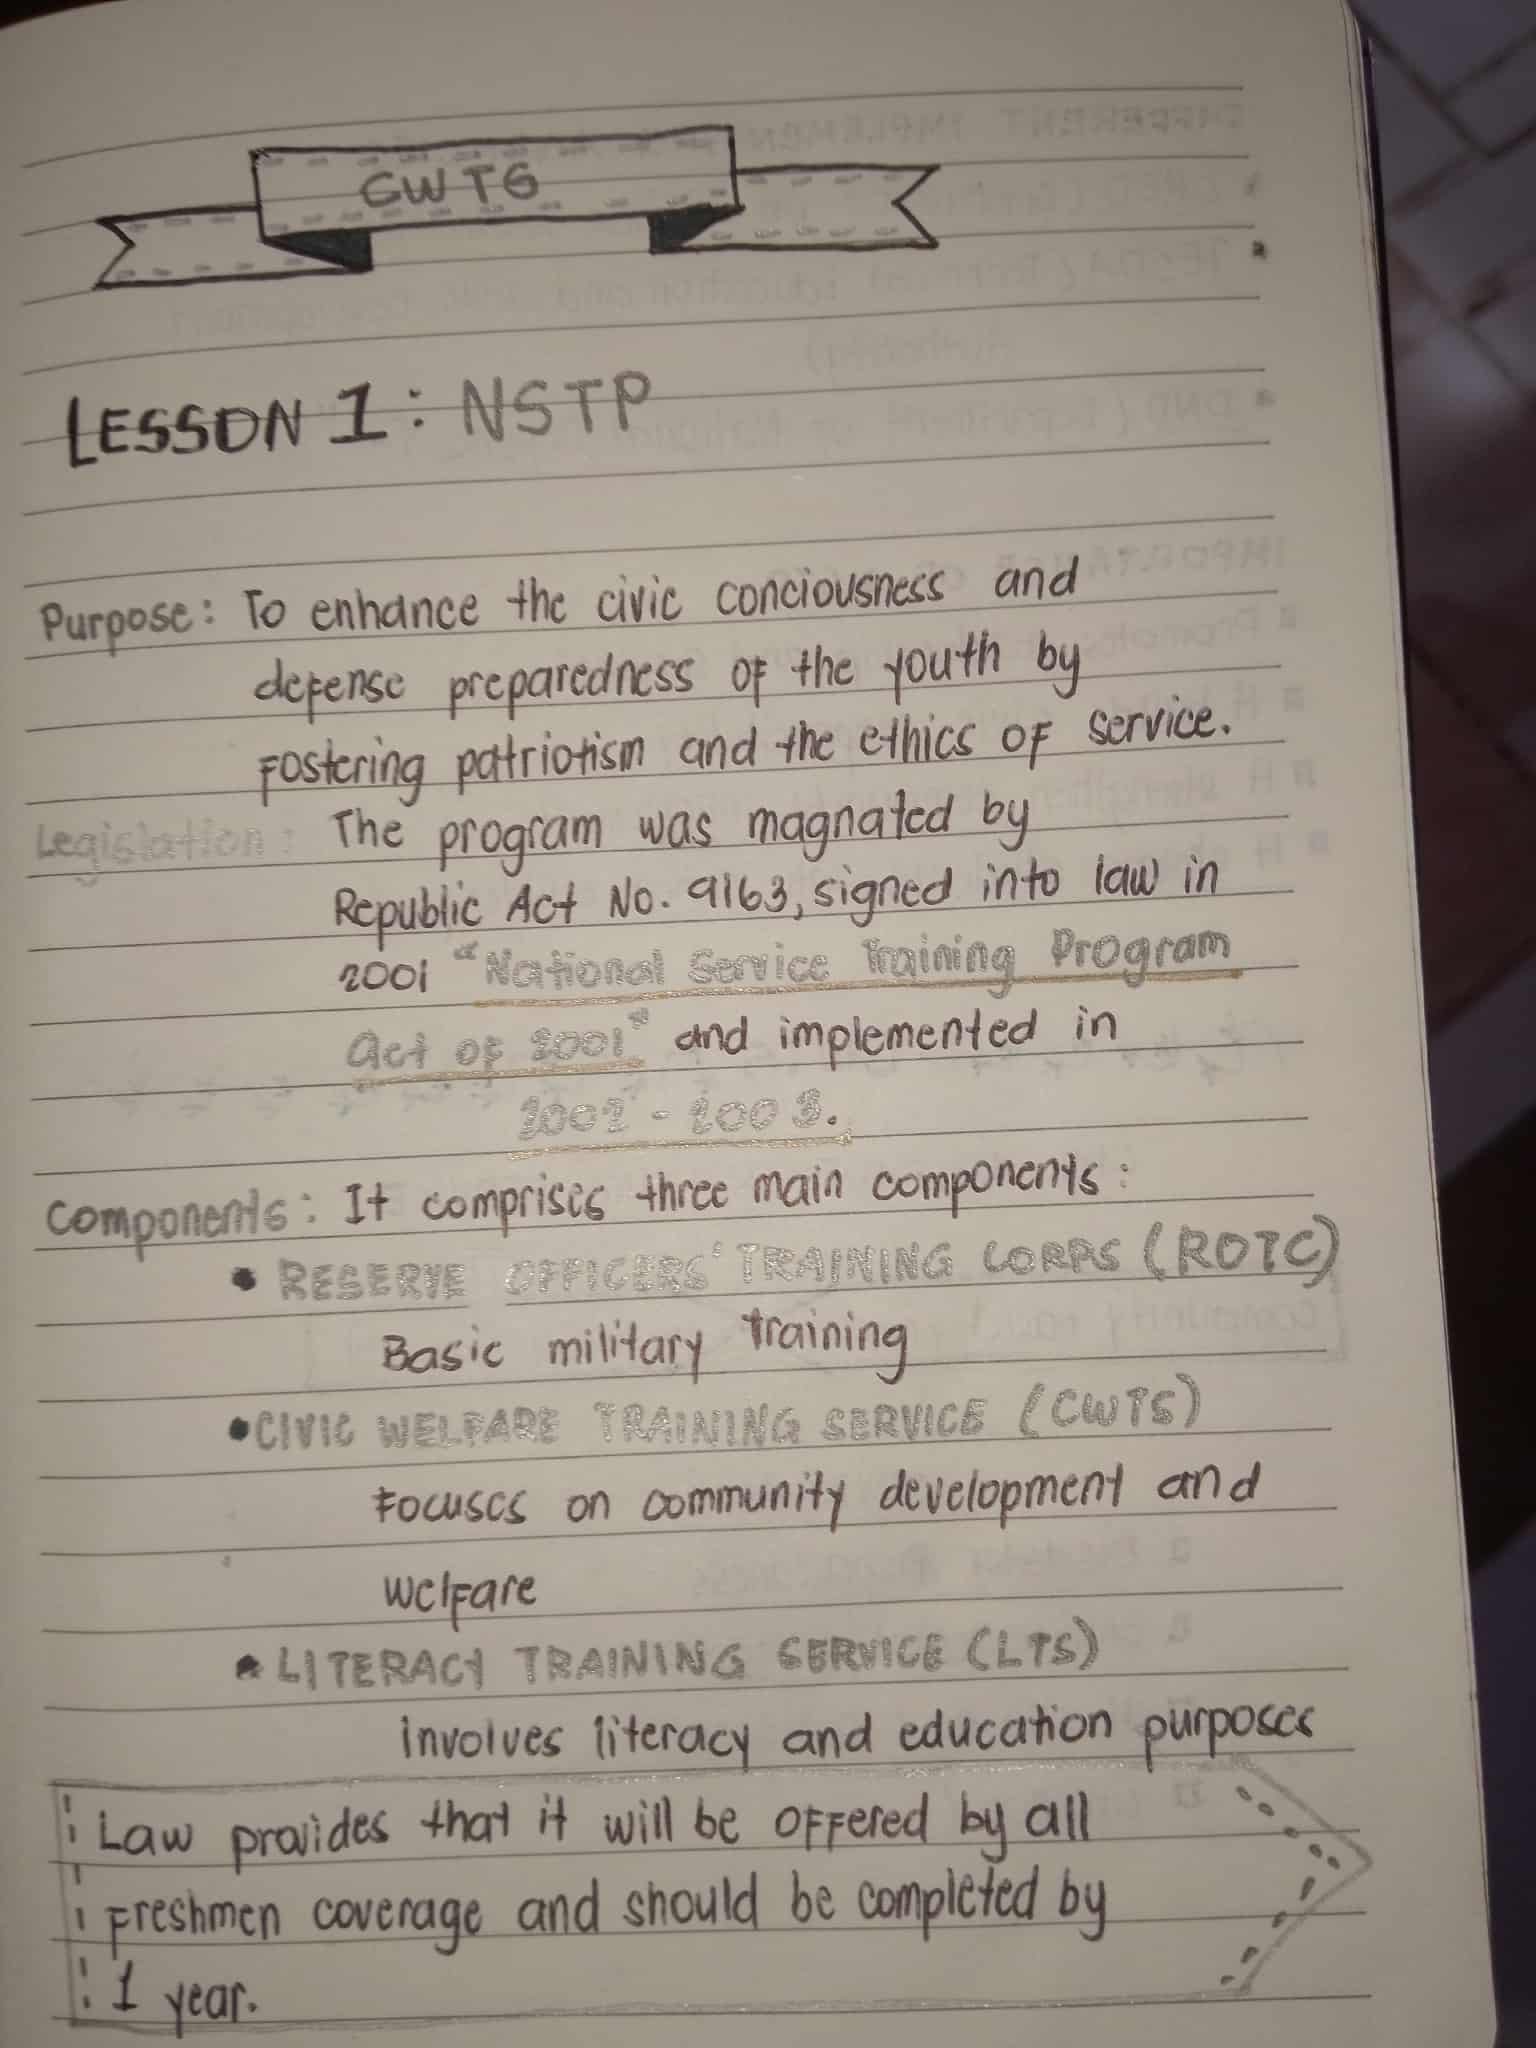 CWTS
LESSON 1: NSTP
Purpose: To enhance the civic conciousness and
defense preparedness of the youth by
fostering patriotism and the ethics of service.
Legislation: The program was magnated by
Republic Act No. 9163, signed into law in
2001 "National Service Training Program
Act of 2001" and implemented in
2002 - 2003.
Components: It comprises three main components:
• RESERVE OFFICERS' TRAINING CORPS (ROTC)
Basic military training
• CIVIC WELFARE TRAINING SERVICE (CWTS)
Focuses on community development and
welfare
• LITERACY TRAINING SERVICE (LTS)
involves literacy and education purposes
Law provides that it will be offered by all
freshmen coverage and should be completed by
1 year.